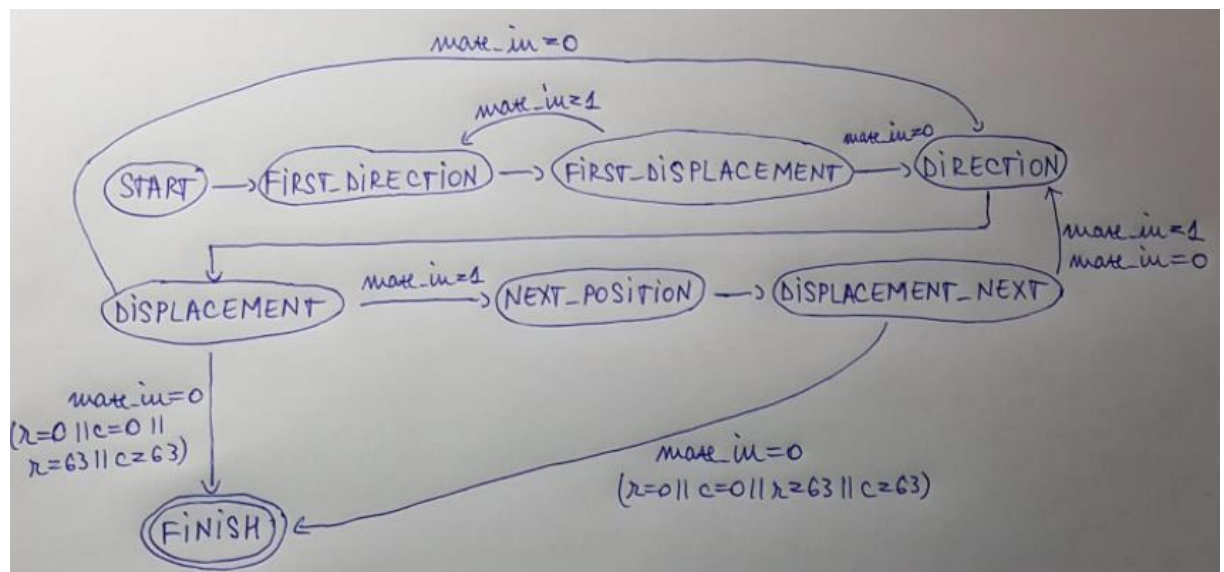 maze_in=0
maze_in=1
maze_in=0
START
FIRST_DIRECTION
FIRST_DISPLACEMENT
DIRECTION
maze_in=1
maze_in=0
DISPLACEMENT
maze_in=1
NEXT_POSITION
DISPLACEMENT_NEXT
maze_in=0
(r=0 || c=0 ||
r=63 || c=63)
maze_in=0
(r=0 || c=0 || r=63 || c=63)
FINISH